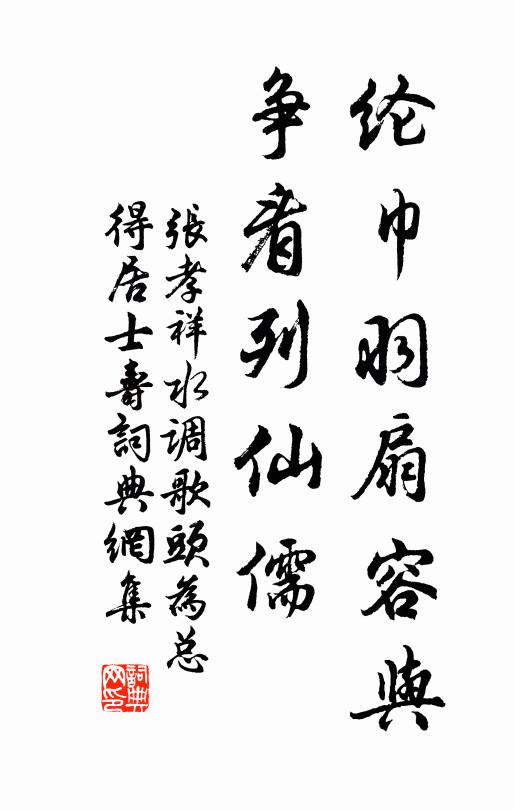 纶巾羽扇容與
争看列仙儒
張孝祥水调歌頭為总
得居士壽詞典網集
詞典网印